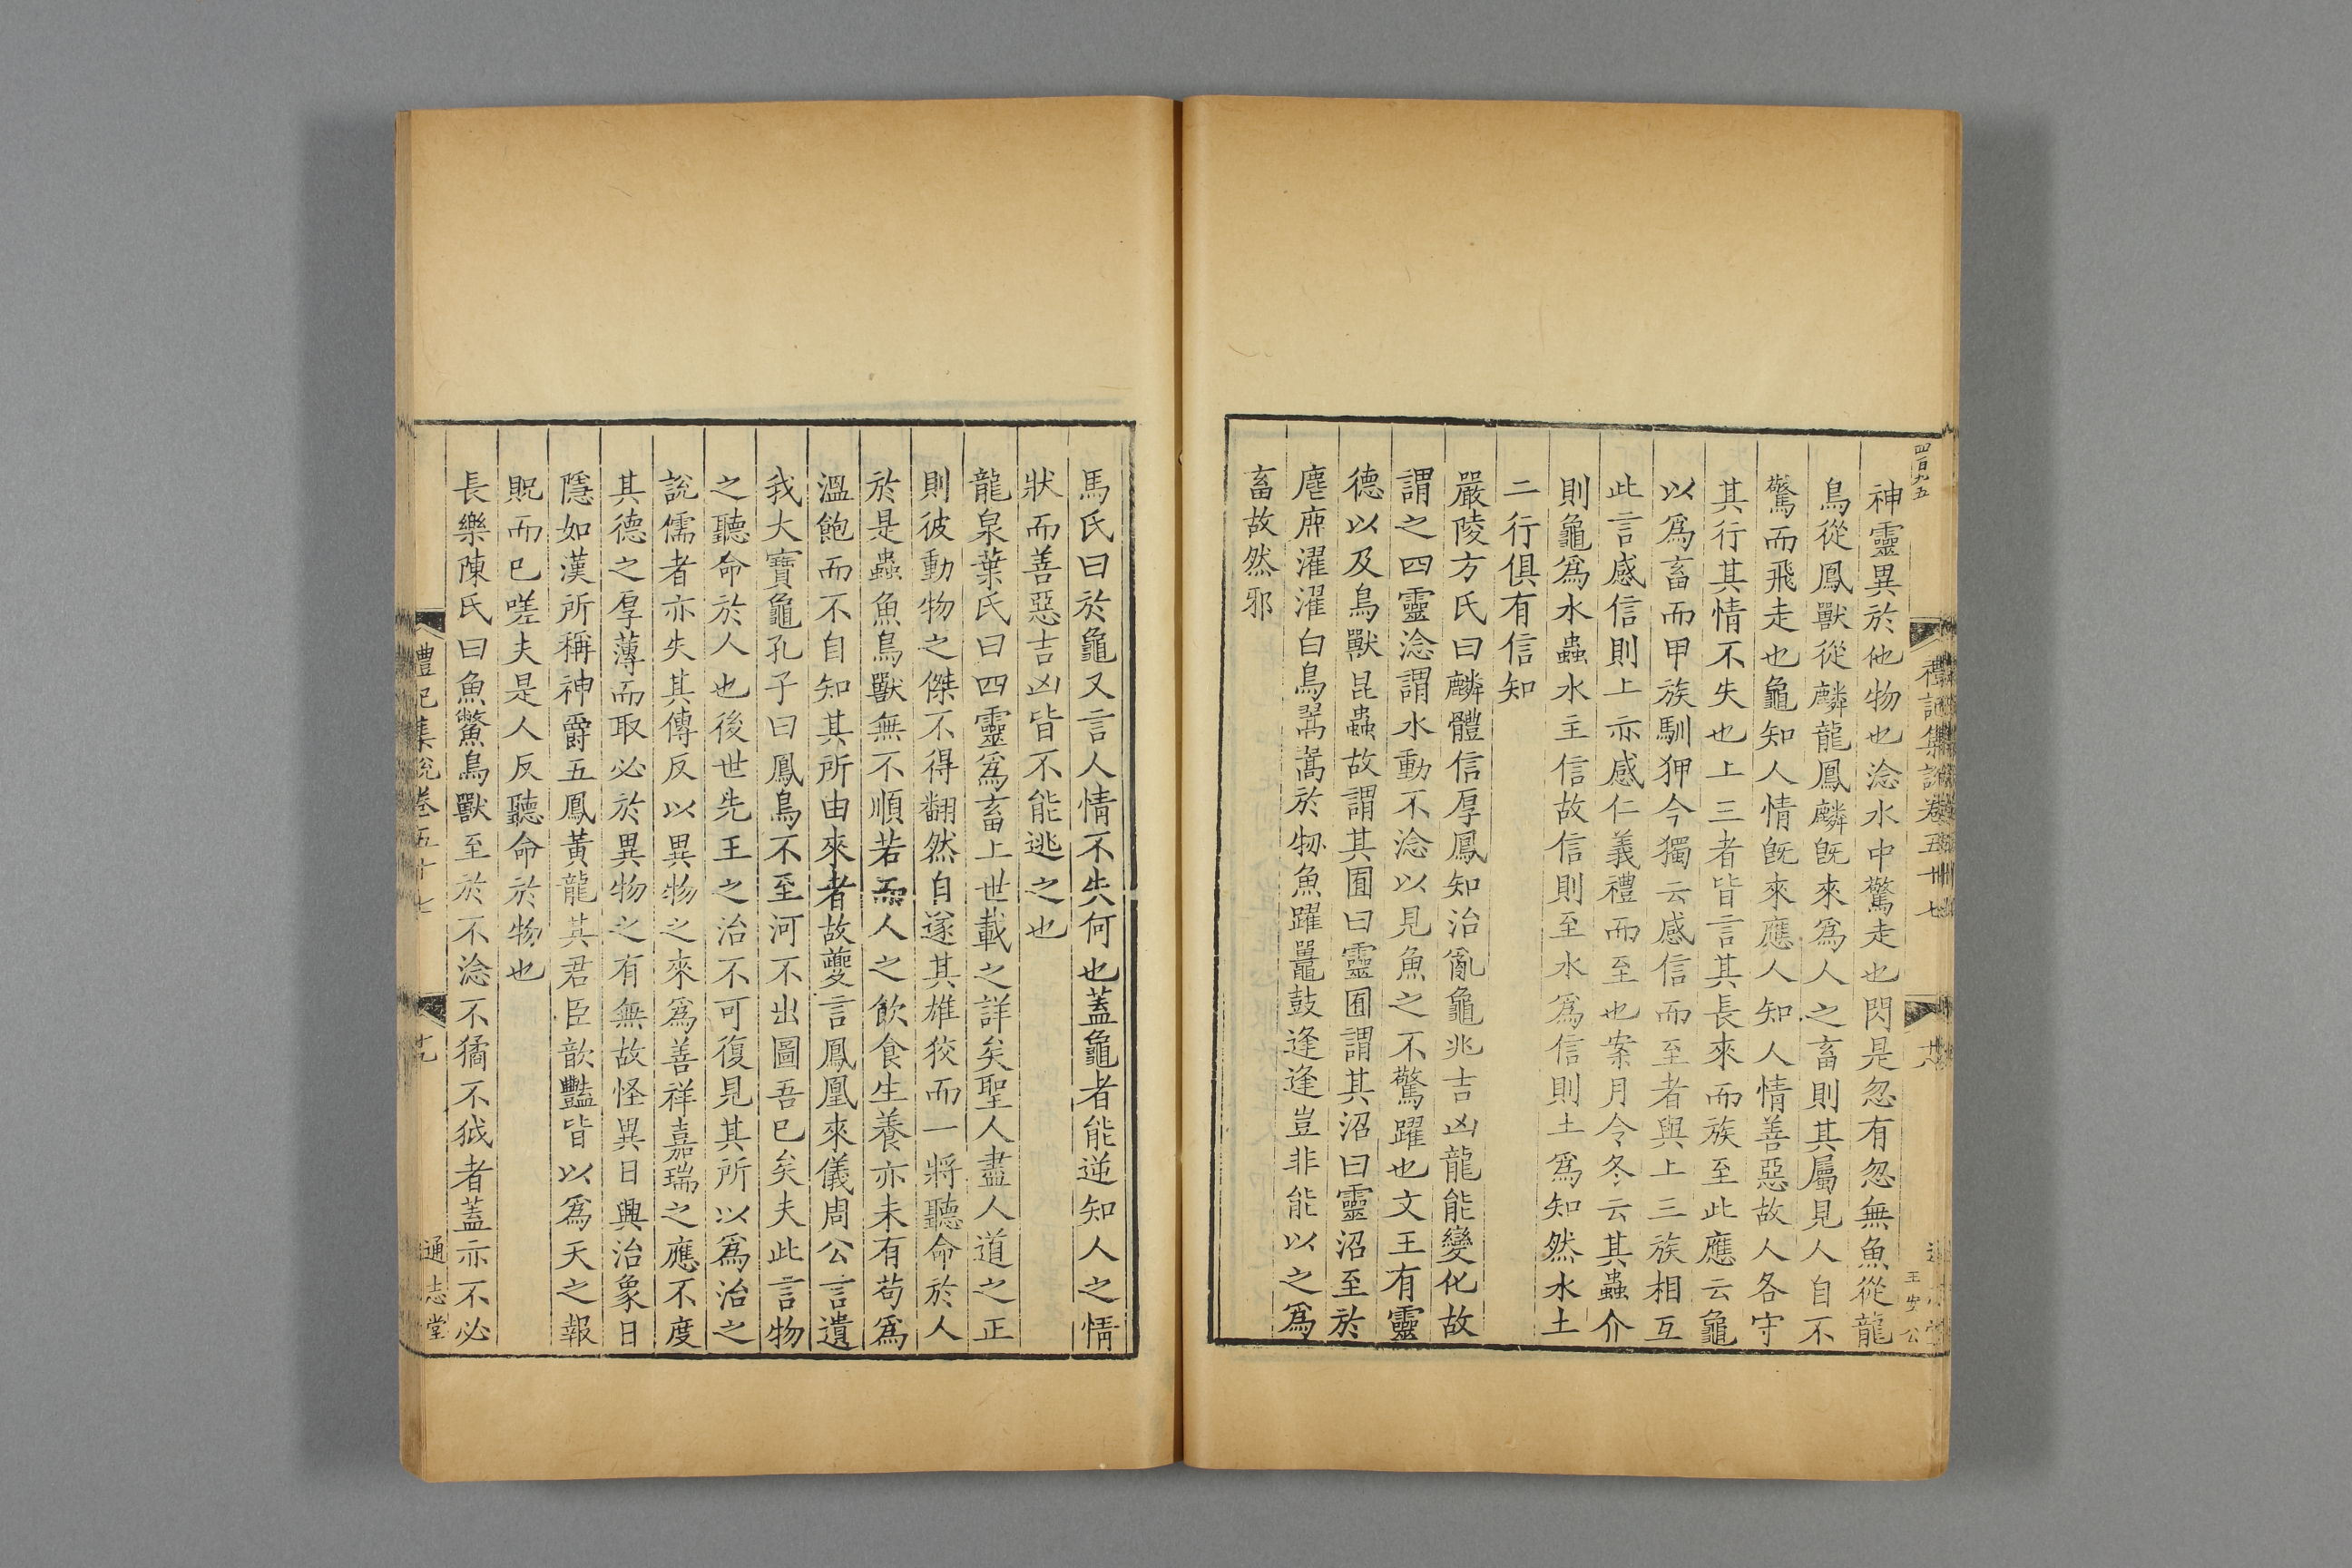 四百九五
禮記集說卷五十七
十八
王安公
神靈異於他物也淰水中驚走也閃是忽有忽無魚從龍
鳥從鳳獸從麟龍鳳麟旣來爲人之畜則其屬見人自不
驚而飛走也龜知人情旣來應人知人情善惡故人各守
其行其情不失也上三者皆言其長來而族至此應云龜
以爲畜而甲族馴狎今獨云感信而至者與上三族相互
此言感信則上亦感仁義禮而至也案月令冬云其蟲介
則龜爲水蟲水主信故信則至水爲信則土爲知然水土
二行俱有信知
嚴陵方氏曰麟體信厚鳳知治亂龜兆吉凶龍能變化故
謂之四靈淰謂水動不淰以見魚之不驚躍也文王有靈
德以及鳥獸昆蟲故謂其囿曰靈囿謂其沼曰靈沼至於
麀麂濯濯白鳥翯翯於牣魚躍鼉鼓逢逢豈非能以之爲
畜故然邪
馬氏曰於龜又言人情不失何也蓋龜者能逆知人之情
狀而善惡吉凶皆不能逃之也
龍泉葉氏曰四靈爲畜上世載之詳矣聖人盡人道之正
則彼動物之傑不得翻然自遂其雄狡而一將聽命於人
於是蟲魚鳥獸無不順若而人之飲食生養亦未有苟爲
溫飽而不自知其所由來者故夔言鳳凰來儀周公言遺
我大寶龜孔子曰鳳鳥不至河不出圖吾巳矣夫此言物
之聽命於人也後世先王之治不可復見其所以爲治之
說儒者亦失其傳反以異物之來爲善祥嘉瑞之應不度
其德之厚薄而取必於異物之有無故怪異日興治象日
隱如漢所稱神爵五鳳黃龍其君臣歆豔皆以爲天之報
貺而巳嗟夫是人反聽命於物也
長樂陳氏曰魚鱉鳥獸至於不淰不獝不狘者蓋亦不必
禮記集說卷五十七
十九
通志堂